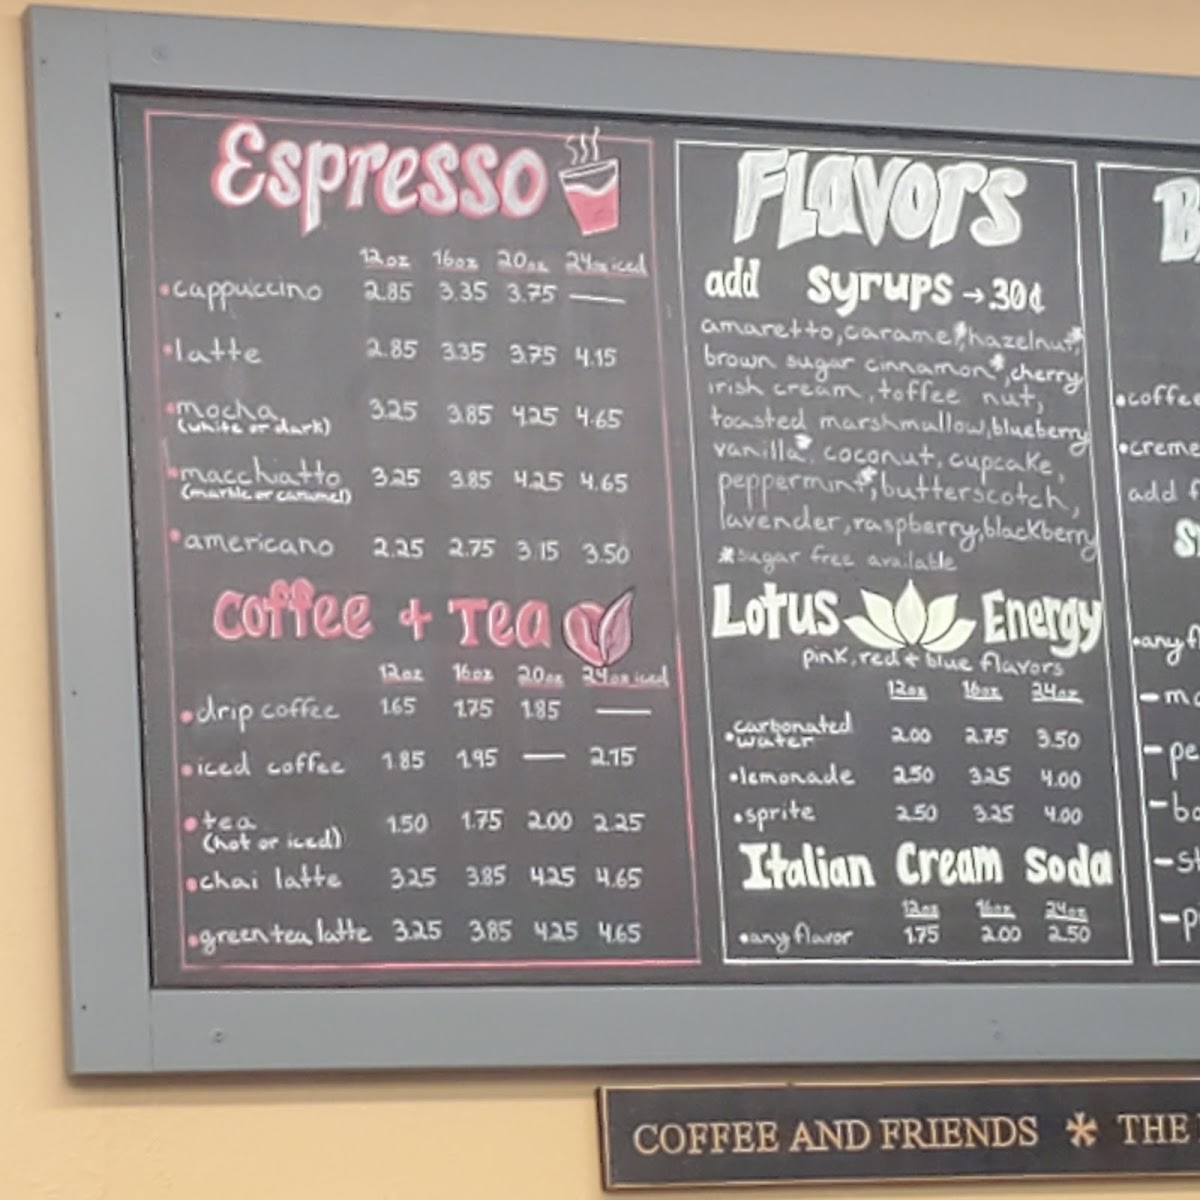 Espresso
12oz 16oz 20oz 24oz iced
•cappuccino 2.85 3.35 3.75 —
•latte 2.85 3.35 3.75 4.15
•mocha 3.25 3.85 4.25 4.65
(white or dark)
•macchiatto 3.25 3.85 4.25 4.65
(marble or caramel)
•americano 2.25 2.75 3.15 3.50
Coffee + Tea
12oz 16oz 20oz 24oz iced
•drip coffee 1.65 1.75 1.85 —
•iced coffee 1.85 1.95 — 2.15
•tea 1.50 1.75 2.00 2.25
(hot or iced)
•chai latte 3.25 3.85 4.25 4.65
•green tea latte 3.25 3.85 4.25 4.65
Flavors
add syrups → .30¢
amaretto, caramel*, hazelnut*,
brown sugar cinnamon*, cherry
irish cream, toffee nut,
toasted marshmallow, blueberry
vanilla*, coconut, cupcake,
peppermint*, butterscotch,
lavender, raspberry, blackberry
*sugar free available
Lotus Energy
pink, red + blue flavors
12oz 16oz 24oz
•carbonated water 2.00 2.75 3.50
•lemonade 2.50 3.25 4.00
•sprite 2.50 3.25 4.00
Italian Cream Soda
12oz 16oz 24oz
•any flavor 1.75 2.00 2.50
•coffee
•creme
add f
•any fl
COFFEE AND FRIENDS * THE